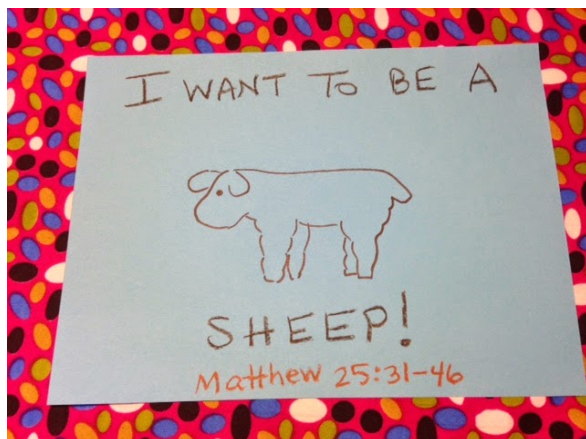 I WANT TO BE A
SHEEP!
Matthew 25:31-46